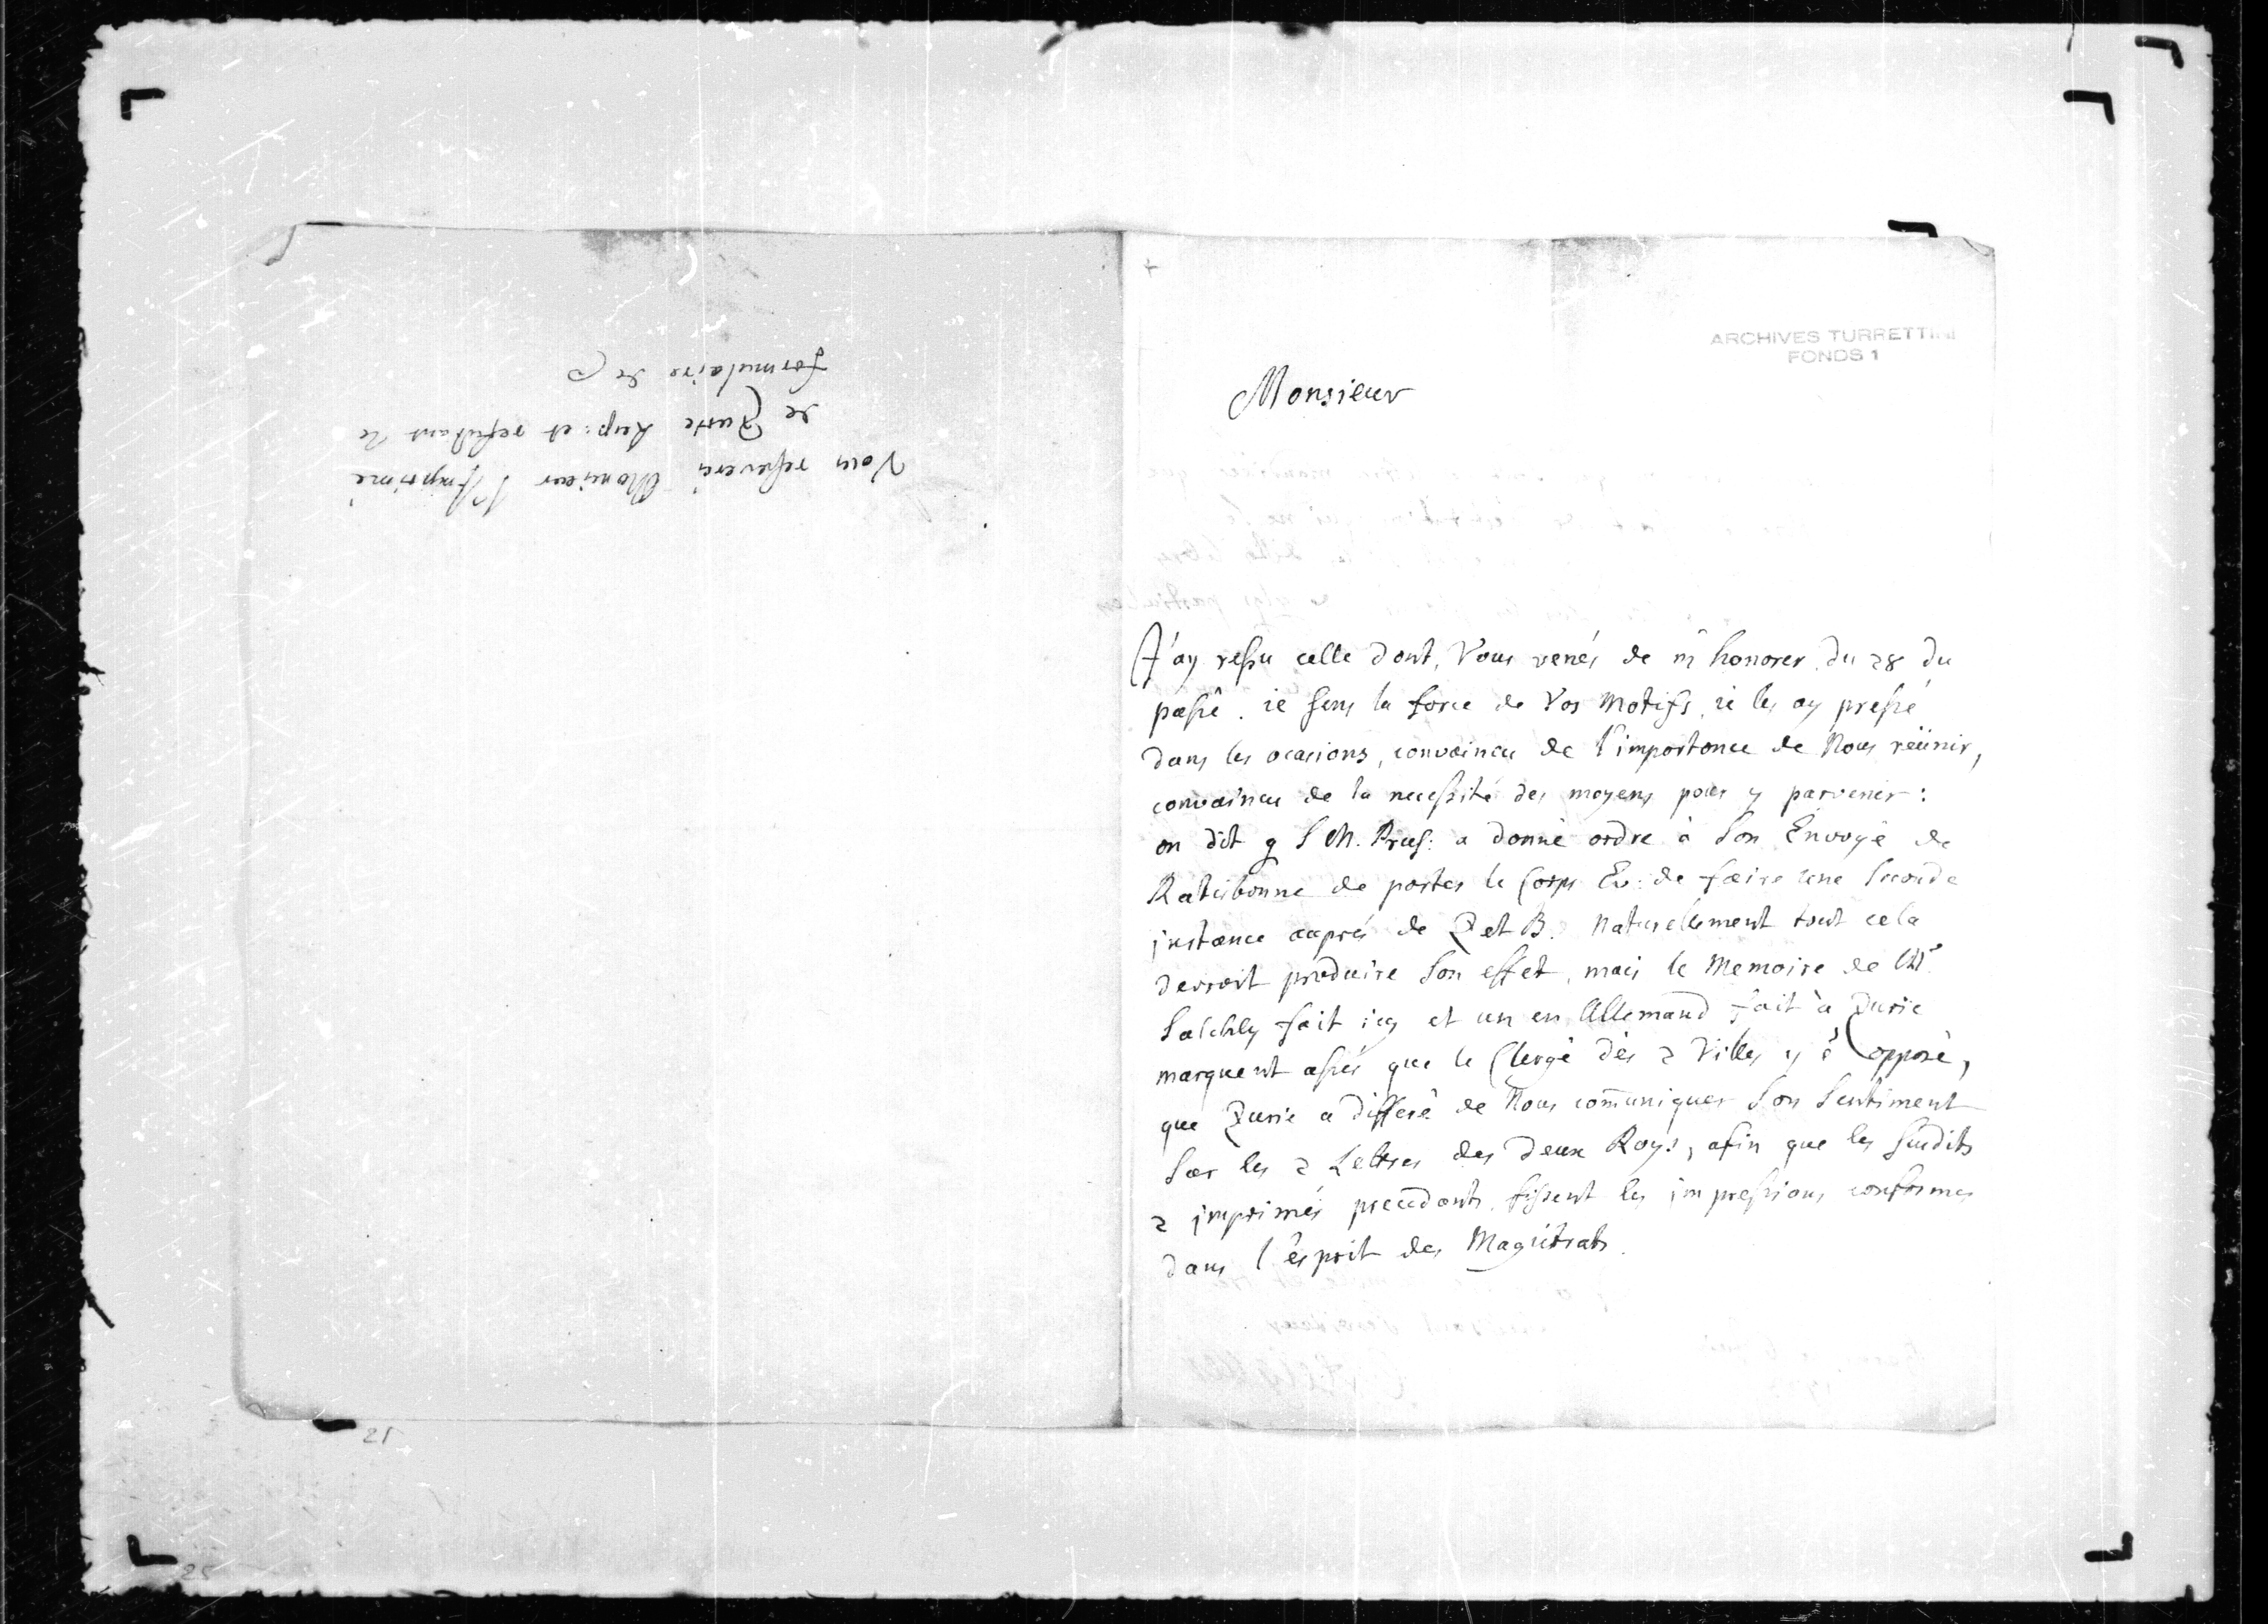 ARCHIVES TURRETTINI
FONDS 1
Monsieur
J'ay reſsu celle dont, Vous venés de m'honorer du 28 du
paſsé. ie sens la force de Vos Motifs, ie les ay preſsé
dans les ocasions, convaincu de l'importance de Nous reünir,
convaincu de la neceſsité des moyens pour y parvenir:
on dit q S M. Prus: a donné ordre à Son Envoyé de
Ratisbonne de porter le Corps Ev: de faire une Seconde
jnstance auprés de Z et B. Naturellement tout cela
devroit produire Son effet, mais le Memoire de Mr.
Salchly fait icy et un en Allemand fait à Zuric
marquent aſsés que le Clergé dès 2 Villes y é opposé,
que Zuric a differé de Nous com̄uniquer Son Sentiment
Sur les 2 Lettres des Deux Roys, afin que les Susdits
2 jmprimés precedants fiſsent les jmpreſsions conformes
dans l'ésprit des Magistrats.
Vous reſsevrés Monsieur l'Imprimé
de Zuric Sup: et refutant le
formulaire de
21
25